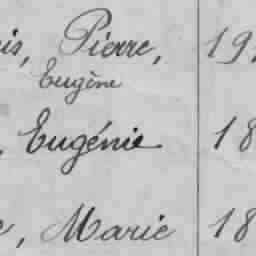 is, Pierre, 19
Eugène
, Eugénie 18
, Marie 18